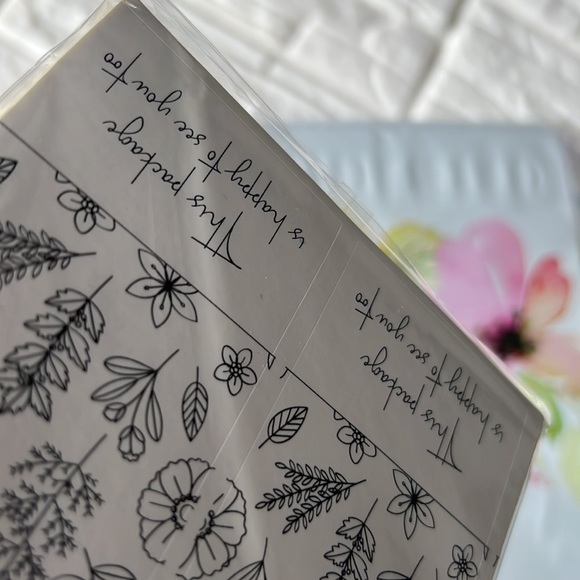 This package
is happy to see you too
This package
is happy to see you too